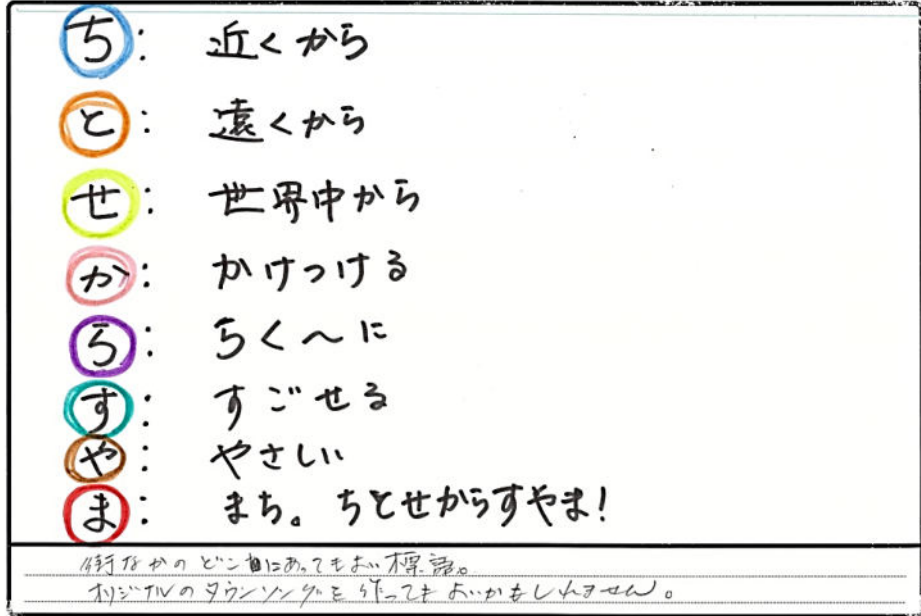 ち: 近くから
と: 遠くから
せ: 世界中から
か: かけつける
ら: らく~に
す: すごせる
や: やさしい
ま: まち。ちとせからすやま!
街なかのどこにあってもよい標語。
オリジナルのタウンソングを作ってもよいかもしれません。